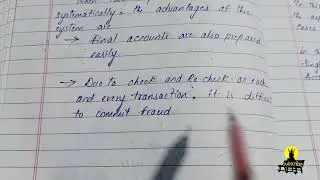 systematically, the advantages of this
system are
→ Final accounts are also prepared
easily.
→ Due to check and Re-check on each
and every transaction, it is difficult
to commit fraud.